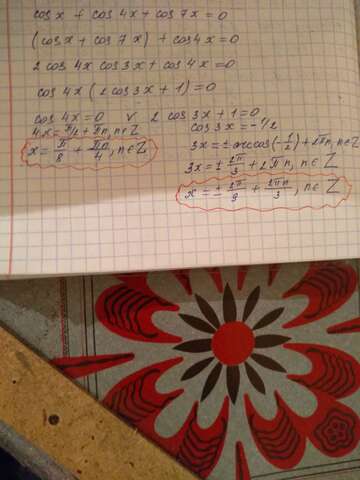 cosx + cos4x + cos7x = 0
(cosx + cos7x) + cos4x = 0
2 cos 4x cos3x + cos4x = 0
cos 4x (2 cos3x + 1) = 0
cos 4x = 0 v 2 cos 3x + 1 = 0
4x = π/2 + πn, n∈Z
cos 3x = -1/2
x = π/8 + πn/4, n∈Z
3x = ± arccos(-1/2) + 2πn, n∈Z
3x = ± 2π/3 + 2πn, n∈Z
x = ± 2π/9 + 2πn/3, n∈Z